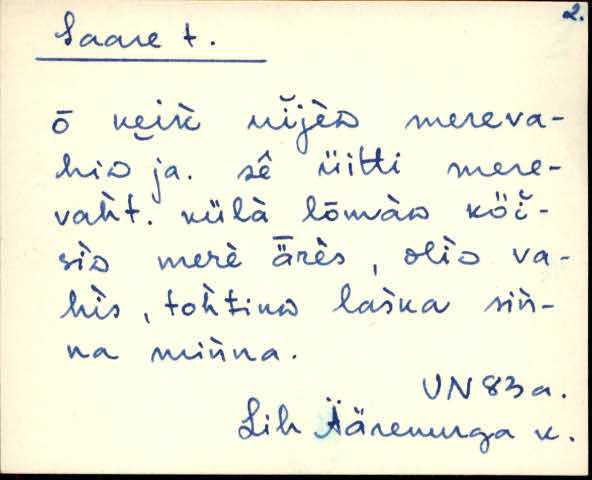 2.
Saare t.
ō keik nĭjèᴅ mereva-
hiᴅ ja. sê üitti mere-
vaht. külà lōmàᴅ köĭ-
siᴅ merè ǟrès, oliᴅ va-
his, tohtinᴅ laska siǹ-
na miǹna.
VN 83a.
Lih Äärenurga k.